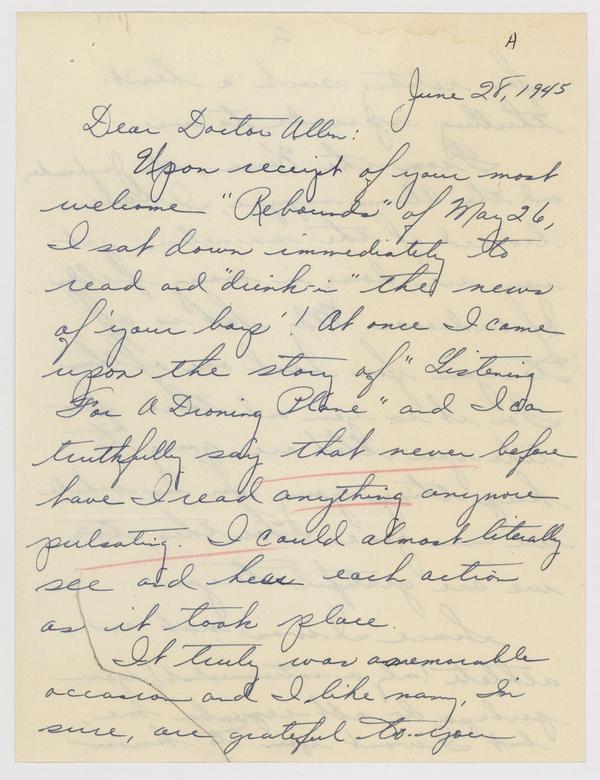 A
June 28, 1945
Dear Doctor Allen:
Upon receipt of your most
welcome "Rebounds" of May 26,
I sat down immediately to
read and "drink-in" the news
of 'your boys'! At once I came
upon the story of "Listening
For A Droning Plane" and I can
truthfully say that never before
have I read anything anymore
pulsating. I could almost literally
see and hear each action
as it took place.
It truly was a memorable
occasion and I like many, I'm
sure, are grateful to you